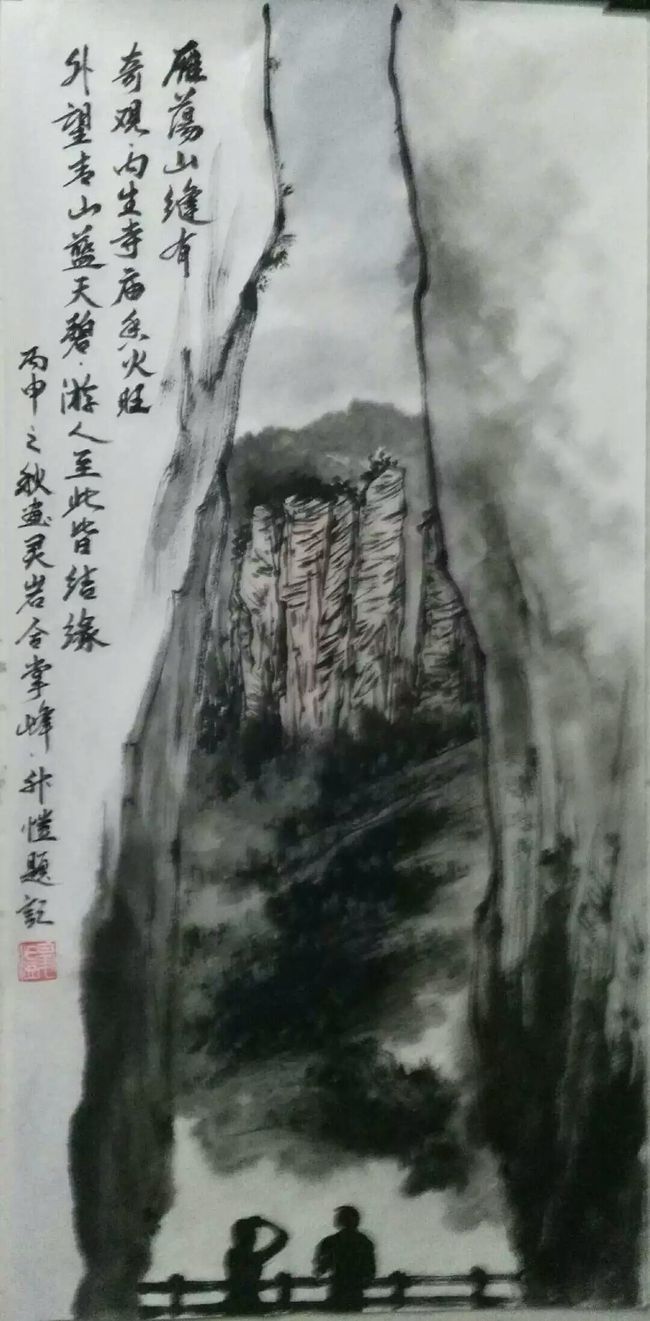 雁荡山缝有
奇观·内生寺庙香火旺
外望青山蓝天碧·游人至此皆结缘
丙申之秋画灵岩合掌峰·升恺题记